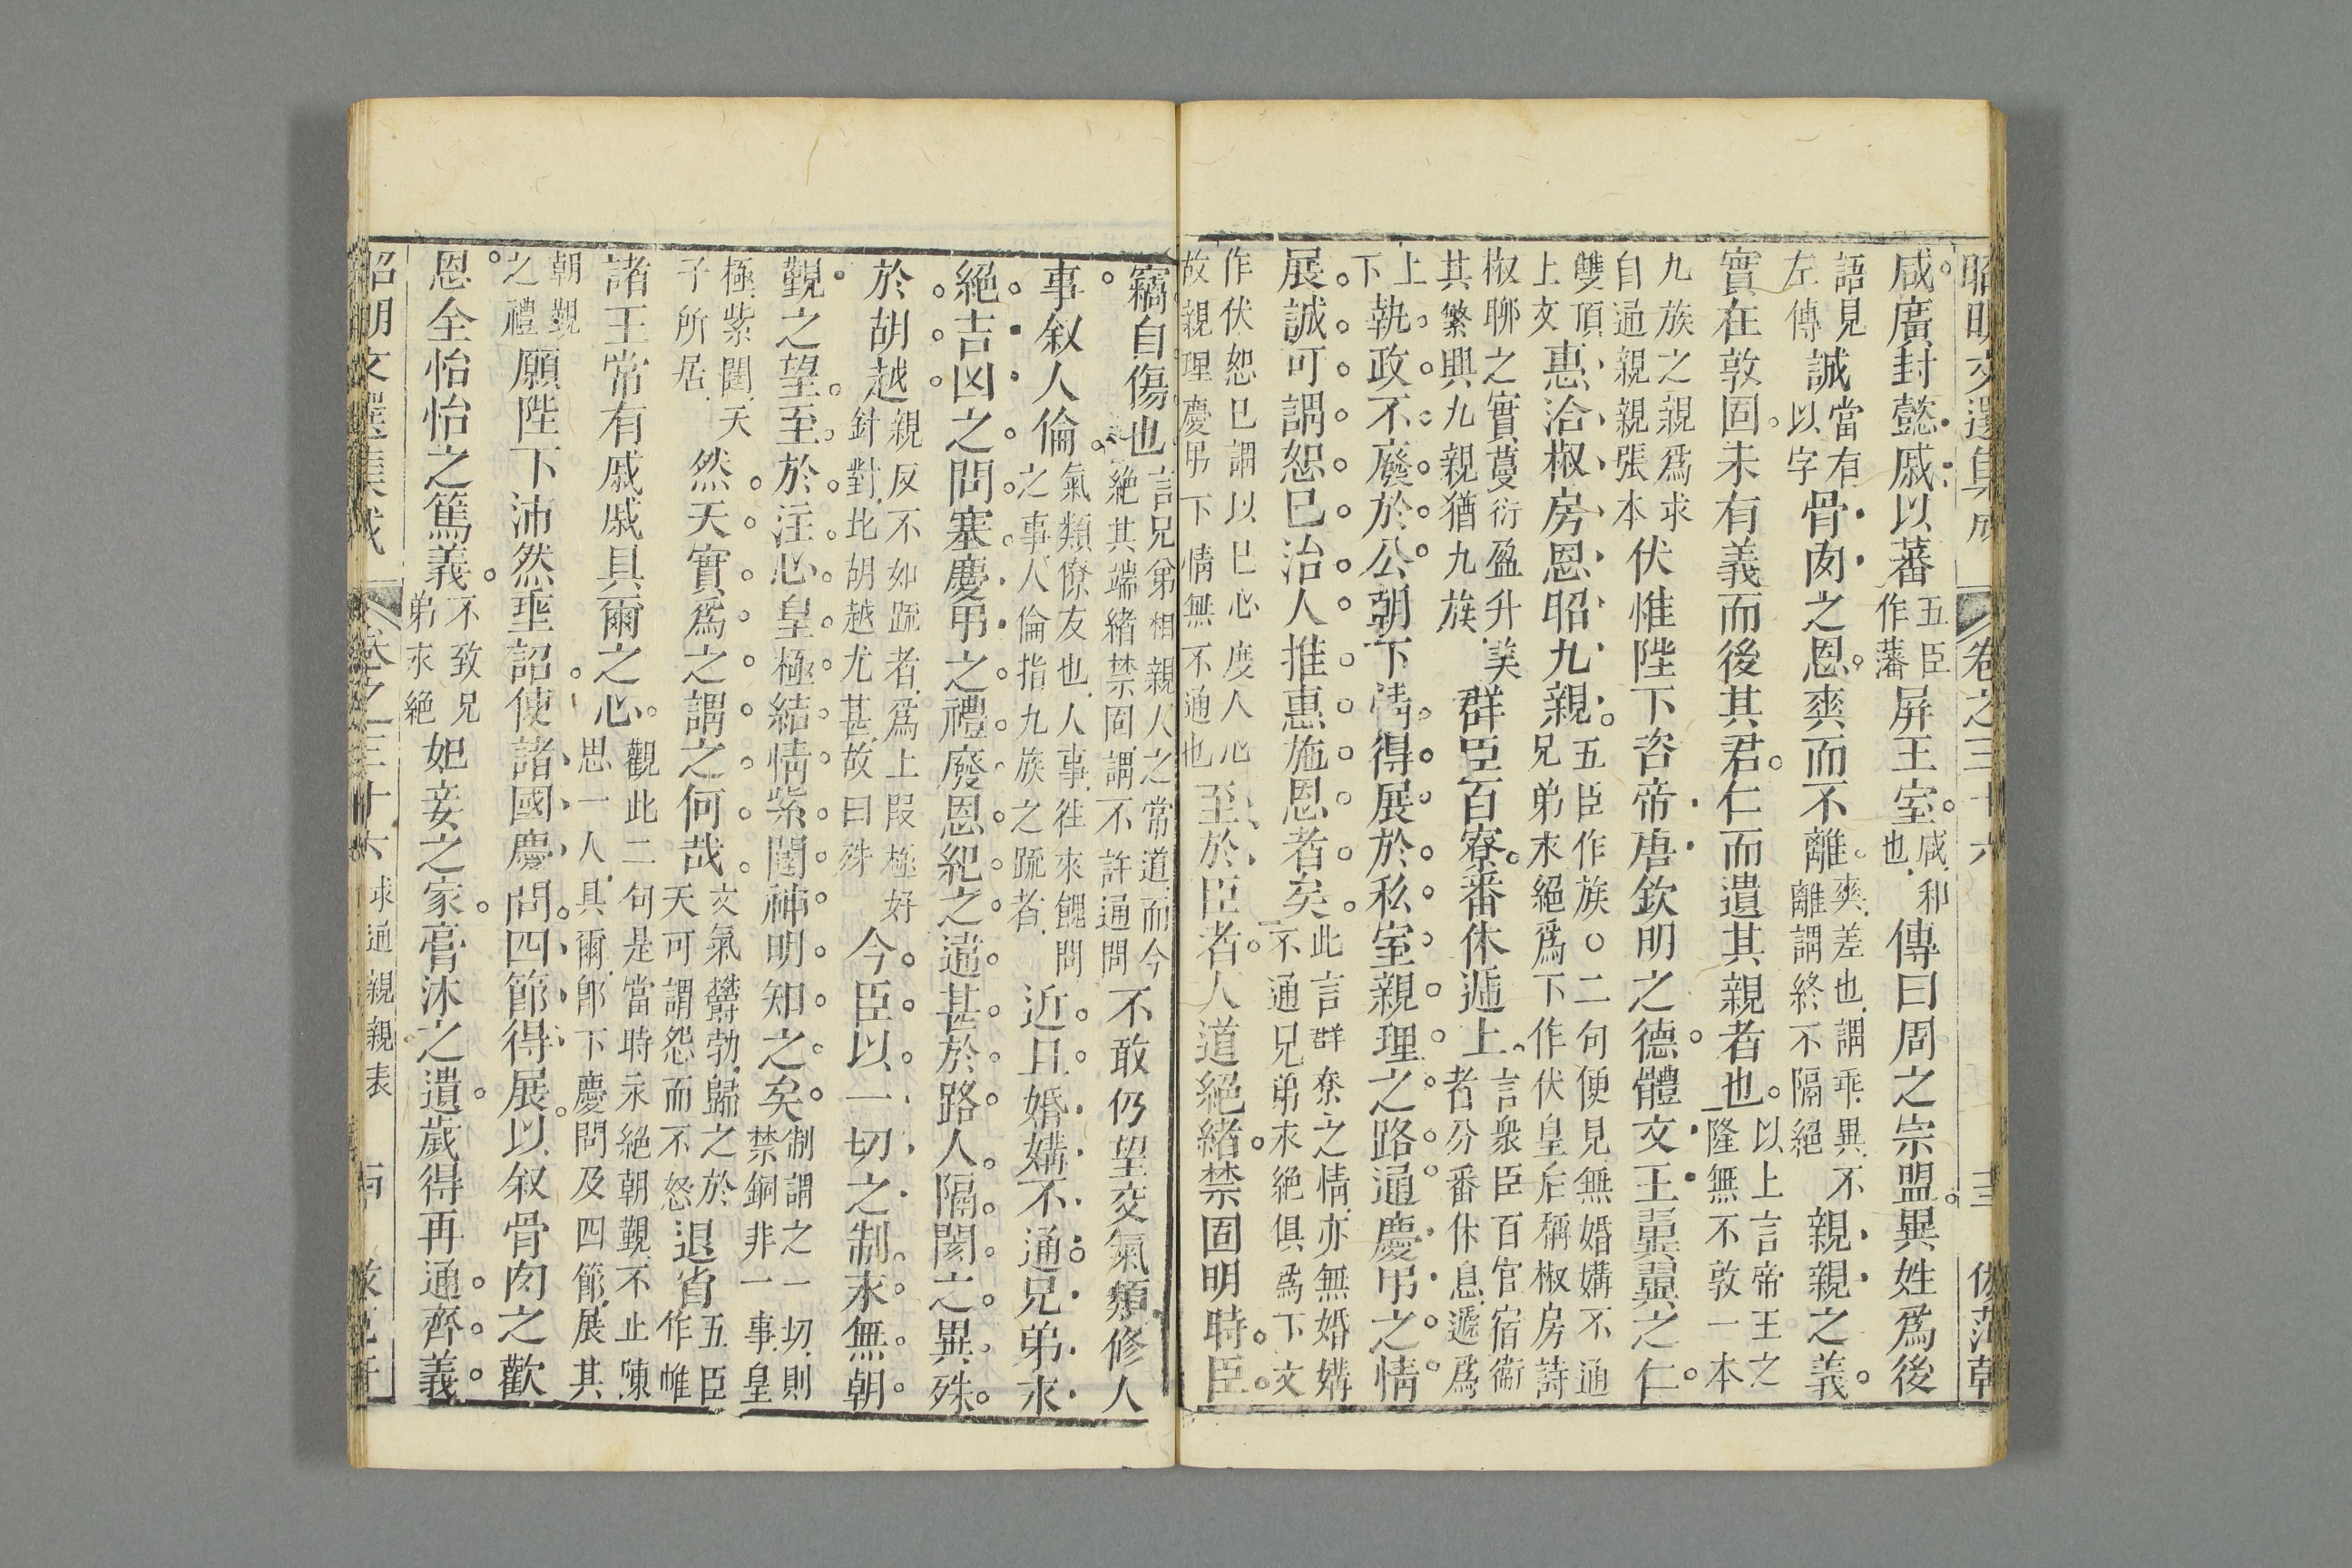 昭明文選集成 卷之三十六 三 倣范軒
咸廣封懿戚以蕃五臣作藩屏王室咸和也傳曰周之宗盟異姓爲後
語見左傳誠當有以字骨肉之恩爽而不離爽差也謂乖異不離謂終不隔絕親親之義
實在敦固未有義而後其君仁而遺其親者也以上言帝王之隆無不敦一本
九族之親爲求自通親親張本伏惟陛下咨帝唐欽明之德體文王翼翼之仁
雙頂上文惠洽椒房恩昭九親五臣作族○二句便見無婚媾不通兄弟永絕爲下作伏皇后稱椒房詩
椒聊之實蔓衍盈升美其繁興九親猶九族群臣百寮番休遞上言衆臣百官宿衞者分番休息遞爲
上下執政不廢於公朝下情得展於私室親理之路通慶弔之情
展誠可謂恕已治人推惠施恩者矣此言群寮之情亦無婚媾不通兄弟永絕俱爲下文
作伏恕已謂以已心度人心故親理慶弔下情無不通也至於臣者人道絕緒禁固明時臣
竊自傷也言兄弟相親人之常道而今絕其端緒禁固謂不許通問不敢仍望交氣類修人
事叙人倫氣類僚友也人事往來餽問之事人倫指九族之疏者近且婚媾不通兄弟永
絕吉凶之問塞慶弔之禮廢恩紀之違甚於路人隔閡之異殊
於胡越親反不如疏者爲上叚極好針對比胡越尤甚故曰殊今臣以一切之制永無朝
覲之望至於注心皇極結情紫闥神明知之矣制謂之一切則禁錮非一事皇
極紫闥天子所居然天實爲之謂之何哉文氣鬱勃歸之於天可謂怨而不怒退省五臣作惟
諸王常有戚戚具爾之心觀此二句是當時永絕朝覲不止陳思一人具爾卽下慶問及四節展其
朝覲之禮願陛下沛然垂詔使諸國慶問四節得展以叙骨肉之歡
恩全怡怡之篤義不致兄弟永絕妃妾之家膏沐之遺歲得再通齊義
昭明文選集成 卷之三十六 求通親親表